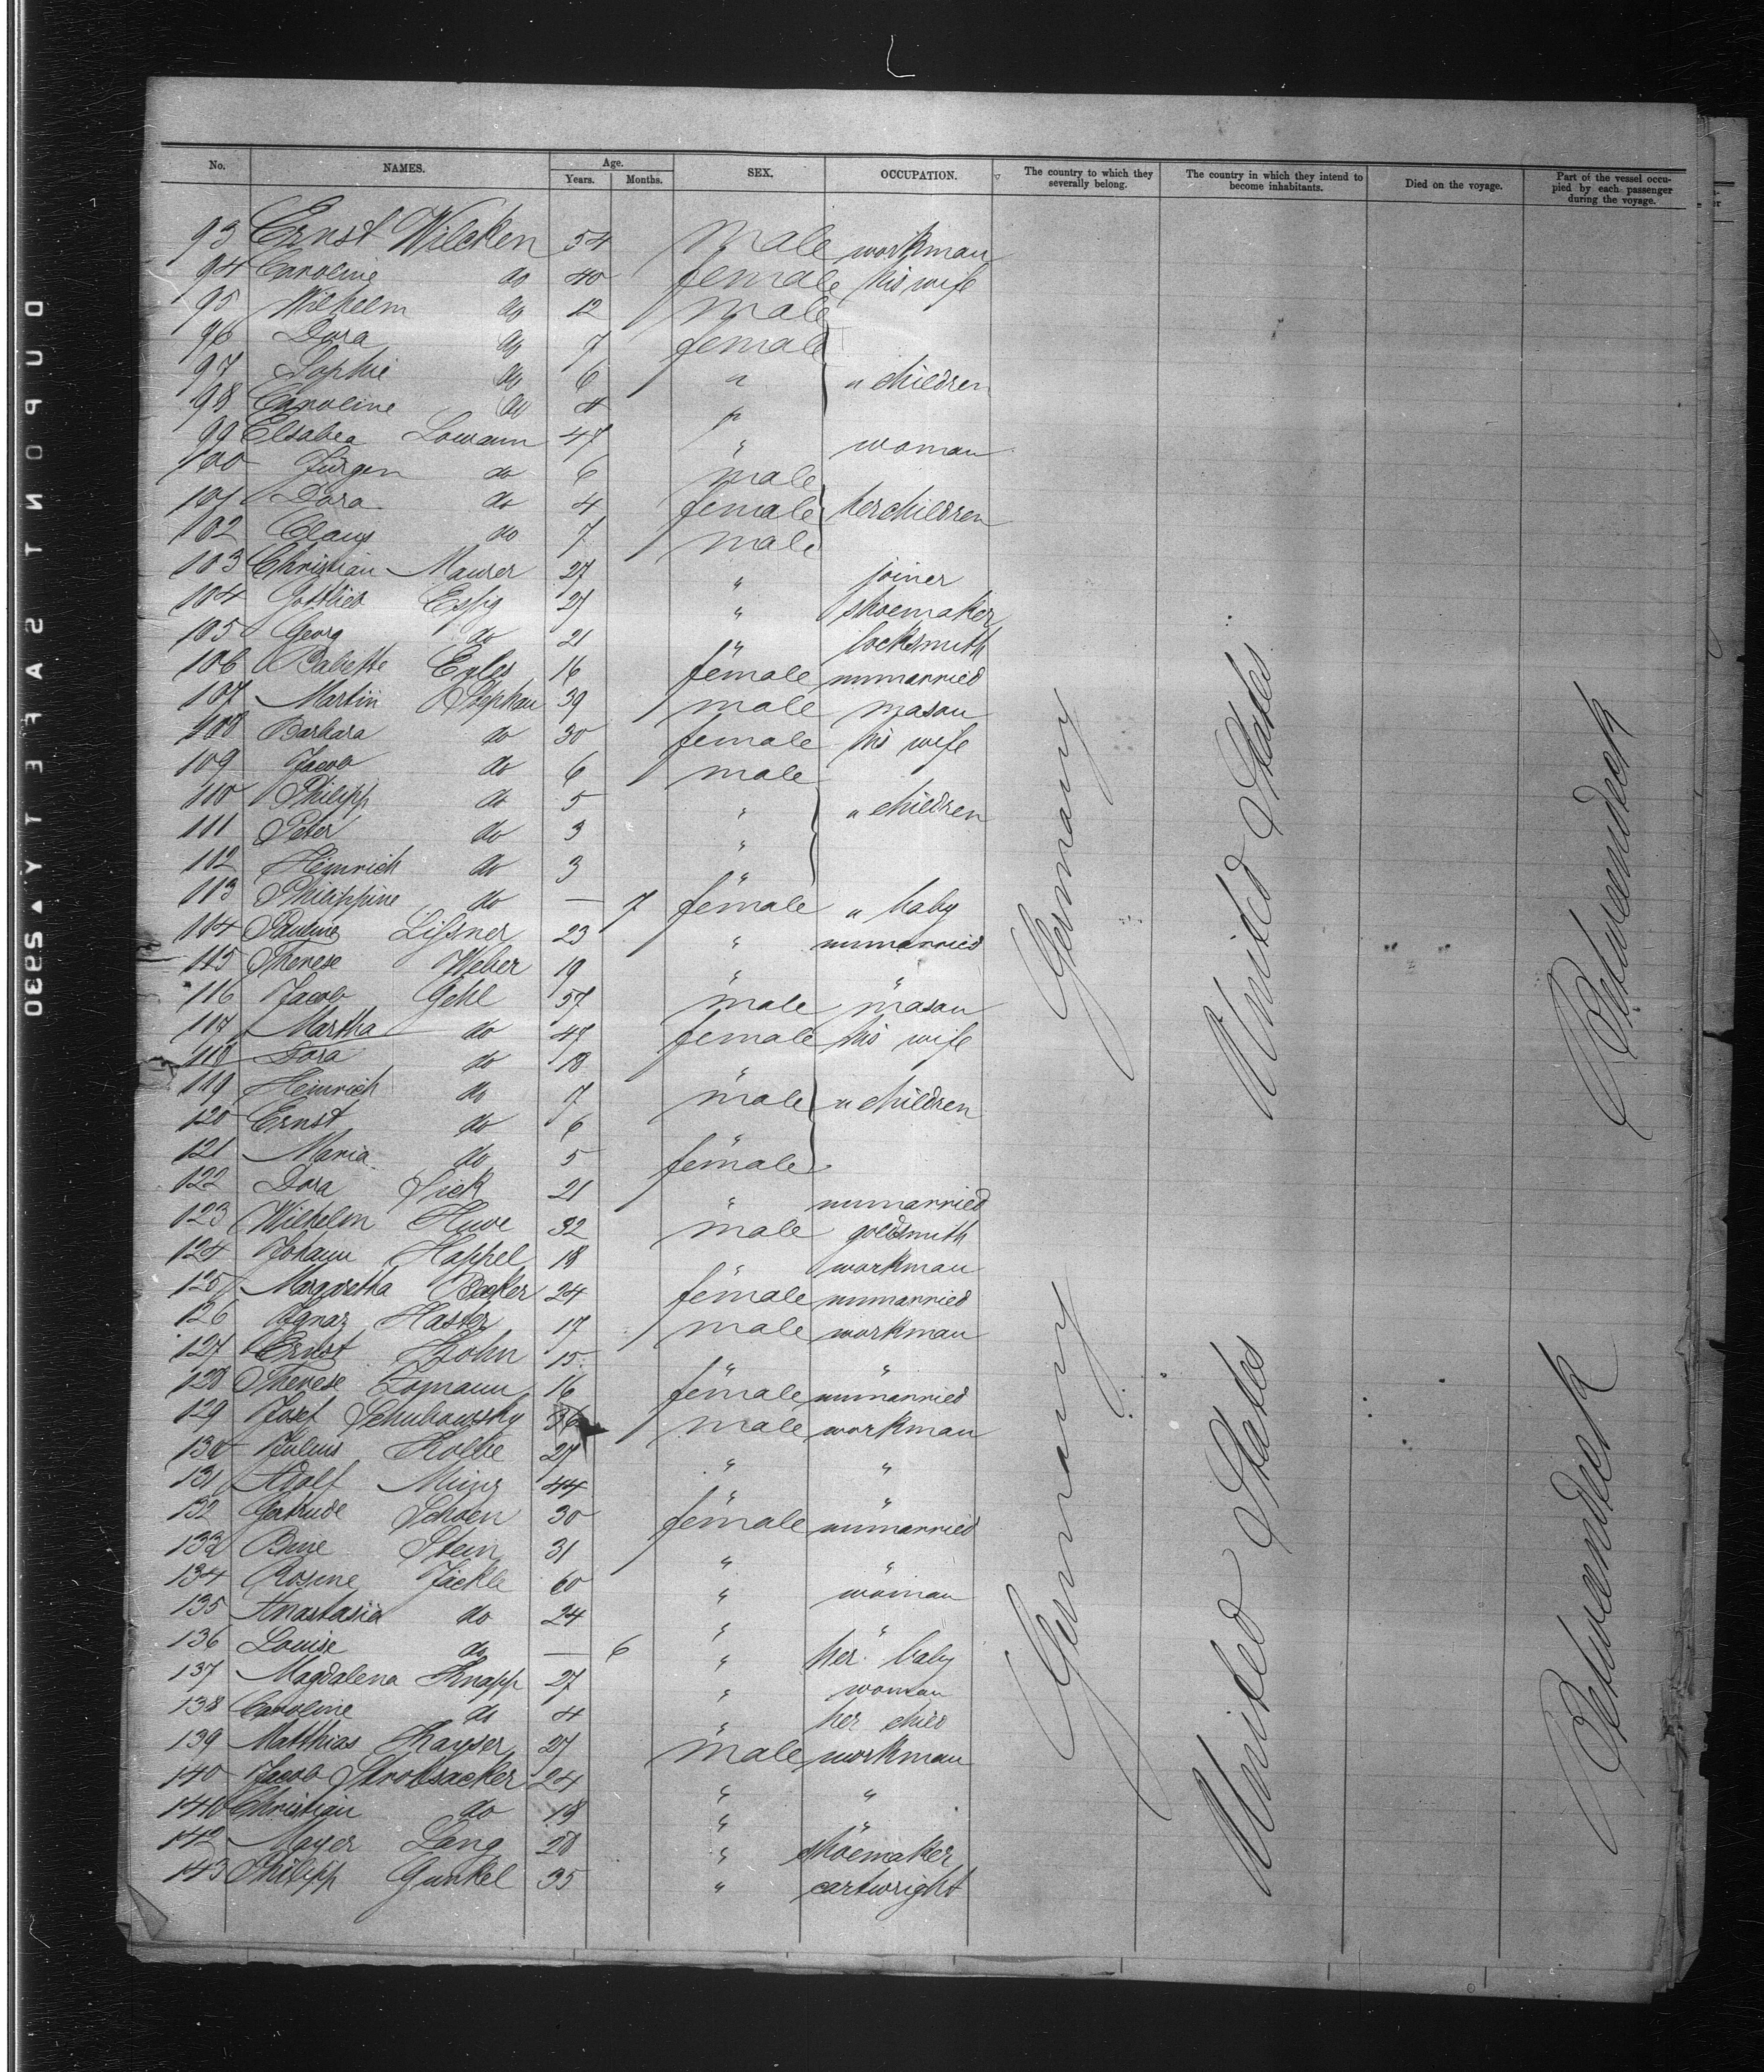 No. NAMES. Age. Years. Months. SEX. OCCUPATION. The country to which they severally belong. The country in which they intend to become inhabitants. Died on the voyage. Part of the vessel occupied by each passenger during the voyage.
93 Ernst Wilcken 54 male workman
94 Caroline do 40 female his wife
95 Wilhelm do 12 male
96 Dora do 7 female
97 Sophie do 6 " " children
98 Caroline do 4 "
99 Elsabea Lowann 47 " woman
100 Jürgen do 6 male
101 Dora do 4 female her children
102 Claus do 7 male
103 Christian Maurer 27 " joiner
104 Gottlieb Essig 27 " shoemaker
105 Georg do 21 " locksmith
106 Babette 16 female unmarried
107 Martin Stephan 39 male mason
108 Barbara do 30 female his wife
109 Jacob do 6 male
110 Philipp do 5 " " children
111 Peter do 3 "
112 Heinrich do 3 "
113 Philippine do — 7 female " baby
104 Pauline Lißner 23 " unmarried
115 Therese Weber 19 " "
116 Jacob Gehl 57 male mason
117 Martha do 47 female his wife
118 Dora do 18 "
119 Heinrich do 7 male " children
120 Ernst do 6 "
121 Maria do 5 female
122 Dora Sick 21 " unmarried
123 Wilhelm Huve 32 male goldsmith
124 Johann Happel 18 " workman
125 Margaretha Becker 24 female unmarried
126 Ignaz Haster 17 male workman
127 Ernst Kohn 15 " "
128 Therese Lomann 16 female unmarried
129 Josef Schubowsky 36 male workman
130 Julius Kolbe 27 " "
131 Adolf 44 " "
132 Gertrude Schoen 30 female unmarried
133 Bine Stein 31 " "
134 Rosine Jäckle 60 " woman
135 Anastasia do 24 " "
136 Louise do — 6 " her baby
137 Magdalena Knapp 27 " woman
138 Caroline do 4 " her child
139 Matthias Kayser 27 male workman
140 Jacob Strohsacker 24 " "
141 Christian do 18 " "
142 Mayer Lang 28 " shoemaker
143 Philipp Gunkel 35 " cartwright
Germany
United States
Betweendeck
Germany
United States
Betweendeck